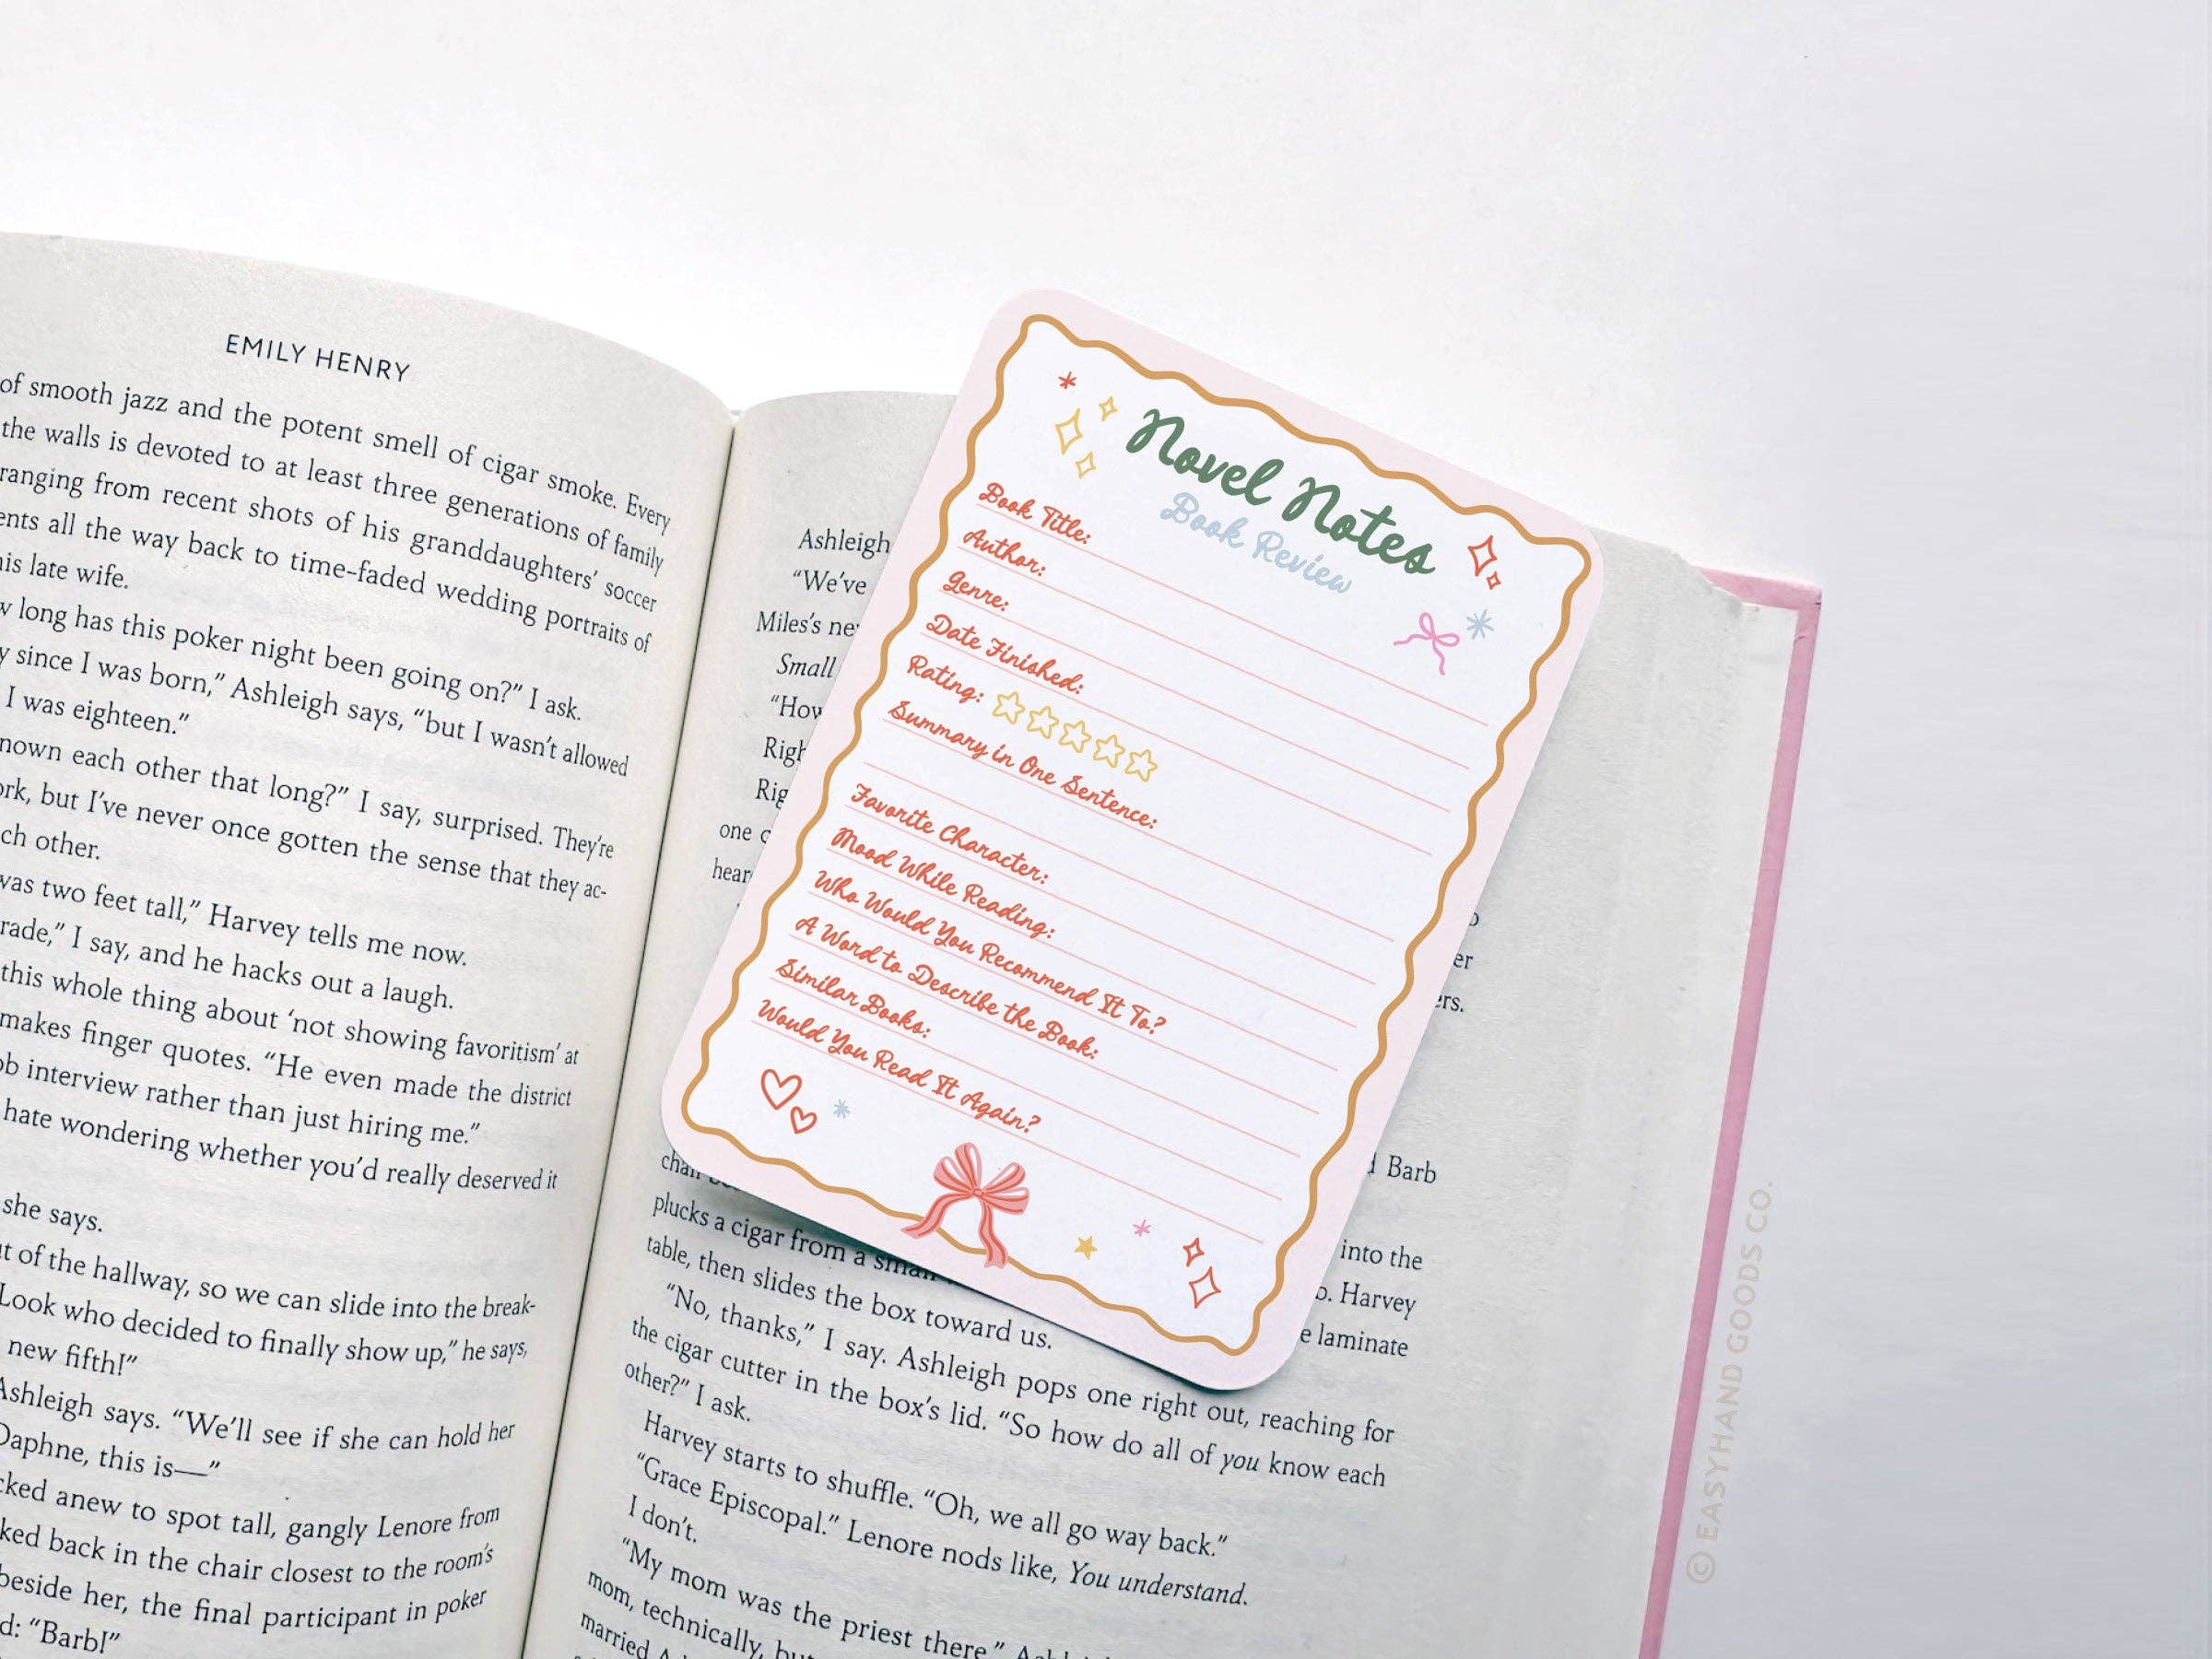 EMILY HENRY
of smooth jazz and the potent smell of cigar smoke. Every
the walls is devoted to at least three generations of family
ranging from recent shots of his granddaughters' soccer
all the way back to time-faded wedding portraits of
his late wife.
long has this poker night been going on?” I ask.
since I was born,” Ashleigh says, “but I wasn't allowed
I was eighteen.”
known each other that long?” I say, surprised. They're
but I've never once gotten the sense that they ac-
each other.
was two feet tall,” Harvey tells me now.
I say, and he hacks out a laugh.
this whole thing about ‘not showing favoritism’ at
makes finger quotes. “He even made the district
interview rather than just hiring me.”
hate wondering whether you'd really deserved it
she says.
of the hallway, so we can slide into the break-
Look who decided to finally show up,” he says,
new fifth!”
Ashleigh says. “We'll see if she can hold her
Daphne, this is—”
anew to spot tall, gangly Lenore from
back in the chair closest to the room's
beside her, the final participant in poker
“Barb!”
Ashleigh
“We've
Miles's
Small
“How
one
Novel Notes
Book Review
Book Title:
Author:
Genre:
Date Finished:
Rating:
Summary in One Sentence:
Favorite Character:
Mood While Reading:
Who Would You Recommend It To?
A Word to Describe the Book:
Similar Books:
Would You Read It Again?
Barb
into the
Harvey
laminate
plucks a cigar from a small
table, then slides the box toward us.
“No, thanks,” I say. Ashleigh pops one right out, reaching for
the cigar cutter in the box's lid. “So how do all of you know each
other?” I ask.
Harvey starts to shuffle. “Oh, we all go way back.”
“Grace Episcopal.” Lenore nods like, You understand.
I don't.
“My mom was the priest there,”
mom, technically, but
married
© EASYHAND GOODS CO.